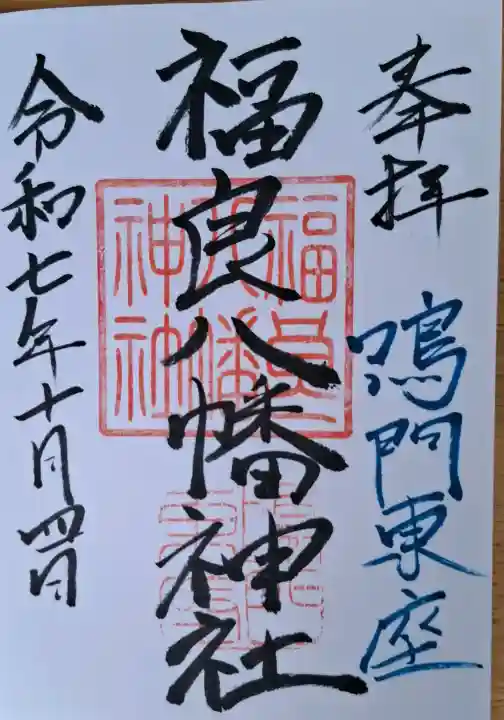 奉拝
鳴門東座
福良八幡神社
令和七年十月四日
福良
八幡
神社